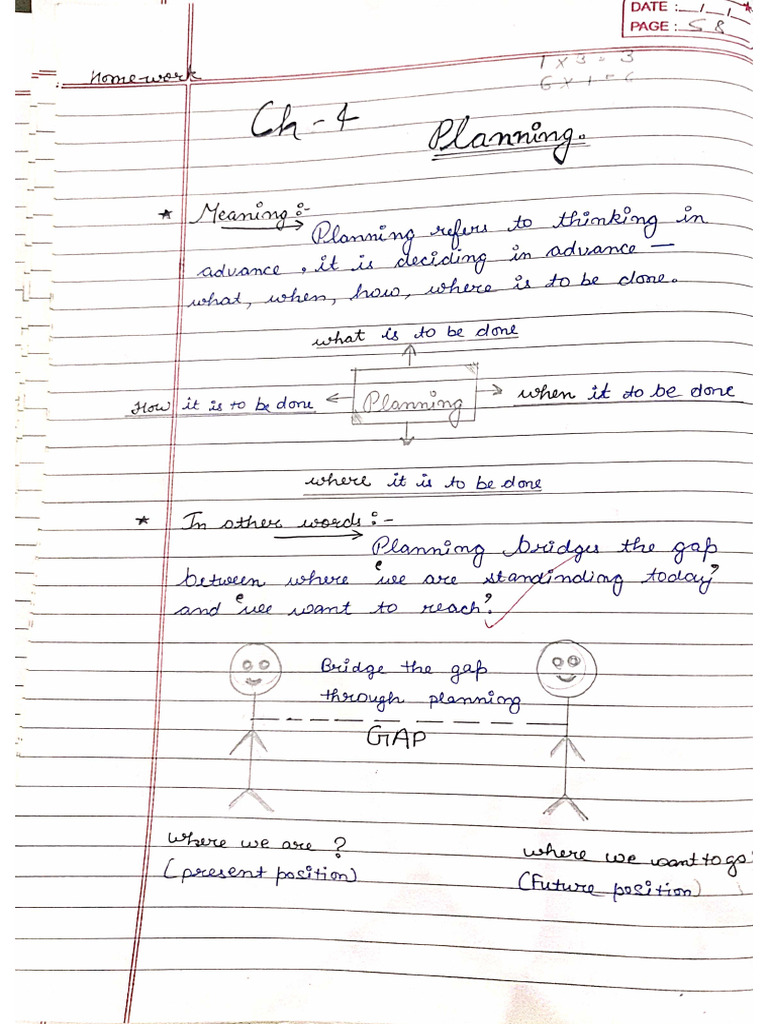 DATE : / /
PAGE : 58
Homework
1 x 3 = 3
6 x 1 = 6
Ch - 4 Planning.
* Meaning :-
Planning refers to thinking in
advance . it is deciding in advance —
what, when, how, where is to be done.
what is to be done
How it is to be done Planning when it to be done
where it is to be done
* In other words :-
Planning bridges the gap
between where "we are standinding today"
and "we want to reach".
Bridge the gap
through planning
GAP
where we are ? where we want to go
(present position) (Future position)